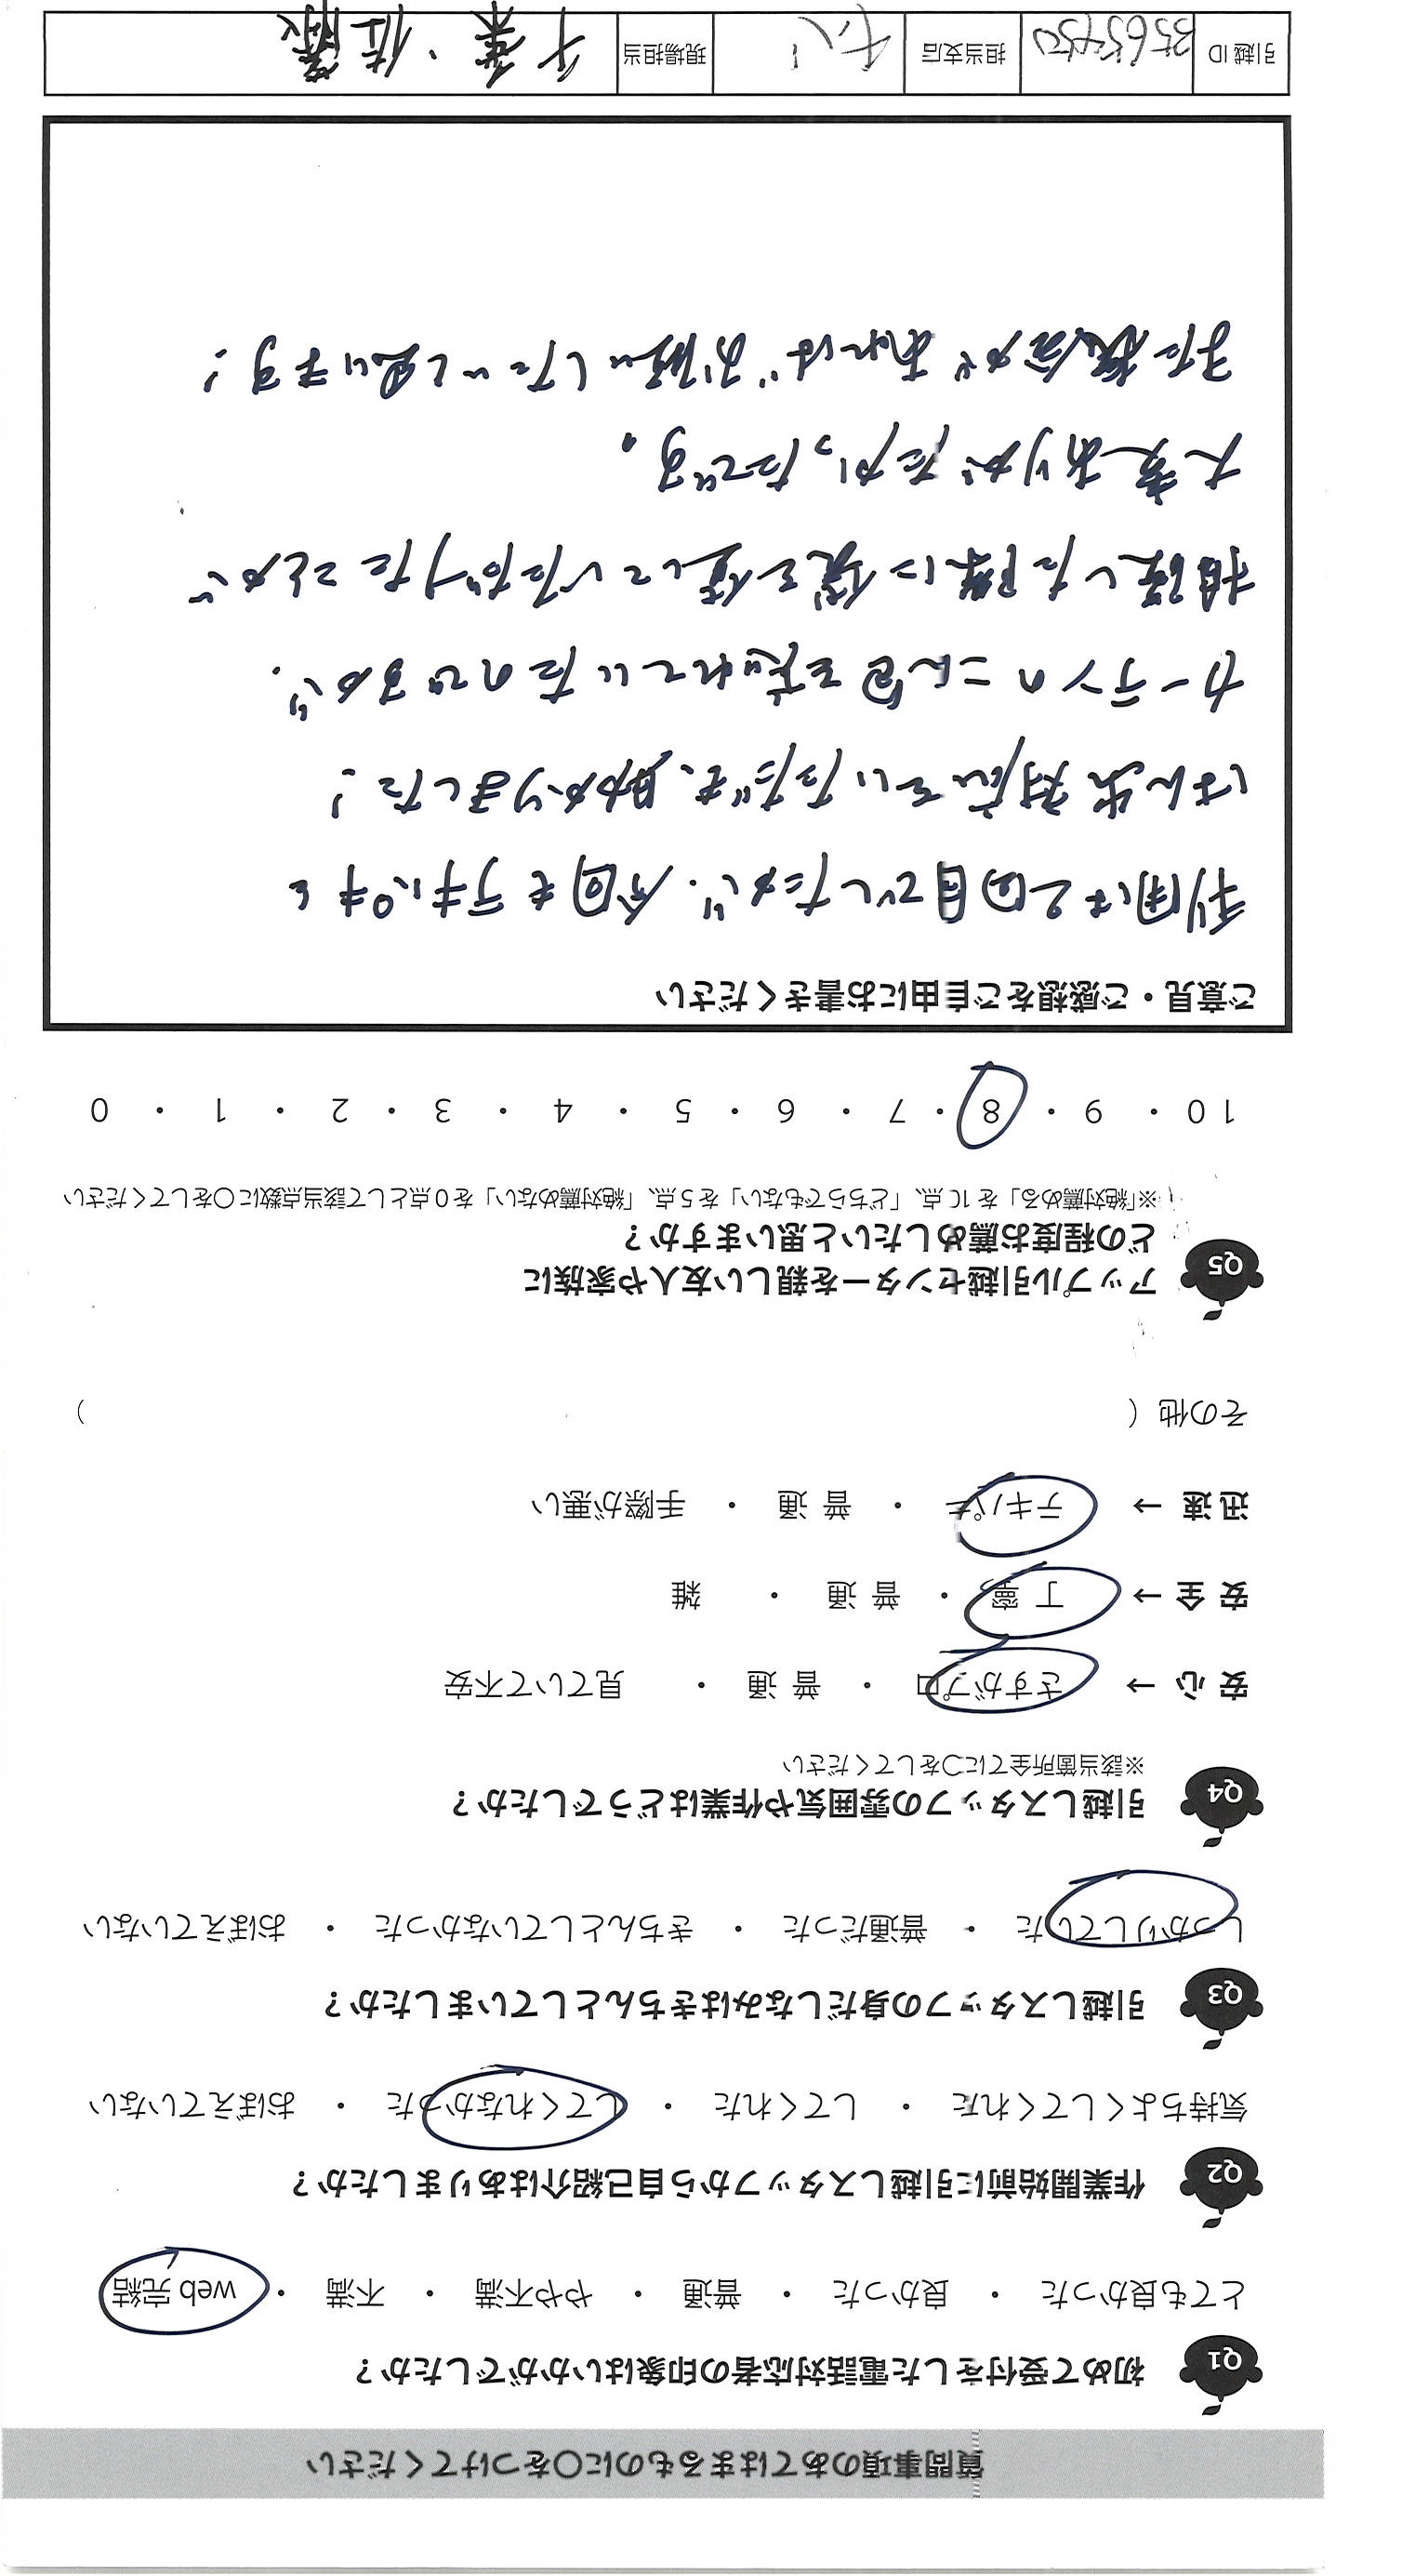 質問事項のあてはまるものに○をつけてください
Q1 初めて受付をした電話対応者の印象はいかがでしたか？
とても良かった ・ 良かった ・ 普通 ・ やや不満 ・ 不満 ・ web 完結
Q2 作業開始前に引越しスタッフから自己紹介はありましたか？
気持ちよくしてくれた ・ してくれた ・ してくれなかった ・ おぼえていない
Q3 引越しスタッフの身だしなみはきちんとしていましたか？
しっかりしていた ・ 普通だった ・ きちんとしていなかった ・ おぼえていない
Q4 引越しスタッフの雰囲気や作業はどうでしたか？
※該当箇所全てに○をしてください
安 心 → さすがプロ ・ 普 通 ・ 見ていて不安
安 全 → 丁 寧 ・ 普 通 ・ 雑
迅 速 → テキパキ ・ 普 通 ・ 手際が悪い
その他（ ）
Q5 アップル引越センターを親しい友人や家族に
どの程度お薦めしたいと思いますか？
※「絶対薦める」を 10 点、「どちらでもない」を 5 点、「絶対薦めない」を 0 点として該当点数に○をしてください
10 ・ 9 ・ 8 ・ 7 ・ 6 ・ 5 ・ 4 ・ 3 ・ 2 ・ 1 ・ 0
ご意見・ご感想をご自由にお書きください
利用は2回目でしたが、今回もテキパキと
はんぶ対応をいただき、助かりました！
カーテンのこん包を忘れていたのですが、
相談した際に袋を渡していただけたことが
大変ありがたかったです。
また機会があればお願いしたいと思います！
引越 ID 3565450 担当支店 現場担当 千葉・佐藤